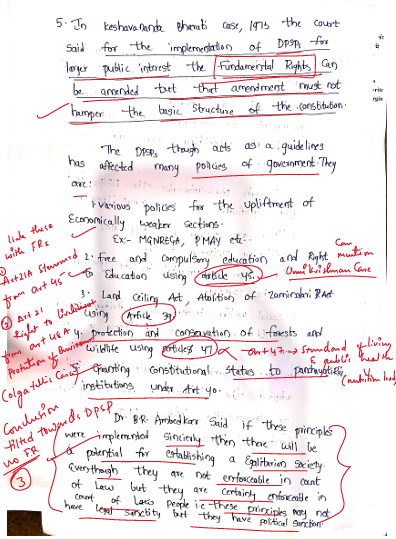 5. In Keshavananda Bharati case, 1973 the court
said for the implementation of DPSPs for
larger public interest the Fundamental Rights can
be amended but that amendment must not
hamper the basic structure of the constitution.
The DPSPs though acts as a guidelines
has affected many policies of government They
are:
1. Various policies for the upliftment of
Economically weaker sections.
Ex:- MGNREGA, PMAY etc.
link these
with FRs
2. Free and compulsory education and Right
to Education using article 45.
Can
mention
Unnikrishnan Case
① Art 21A stemmed
from art 45
3. Land Ceiling Act, Abolition of Zamindari Act
using Article 39
② Art 21
Right to
from art 48A
Protection of
(Olga Tellis Case)
4. protection and conservation of forests and
wildlife using article 47
Art 47 → Standard of living
& public health
(nutrition
5. Granting constitutional status to panchayati
institutions under Art 40.
Conclusion
tilted towards DPSP
no FR
③
Dr B.R. Ambedkar said if these principles
were implemented sincerly then there will be
a potential for establishing a Egalitarian Society.
Eventhough they are not enforceable in court
of Law but they are certainly enforceable in
court of Laws people i.e these principles may not
have legal sanctity but they have political sanction.